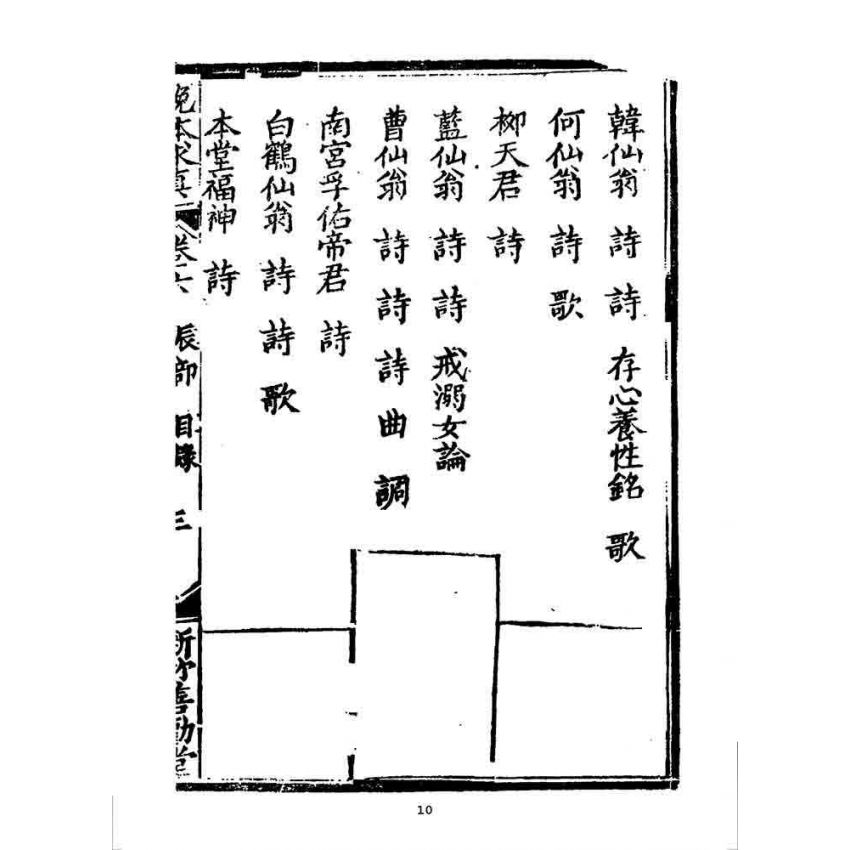 韓仙翁 詩 詩 存心養性銘 歌
何仙翁 詩 歌
柳天君 詩
藍仙翁 詩 詩 戒溺女論
曹仙翁 詩 詩 詩 曲 調
南宮孚佑帝君 詩
白鶴仙翁 詩 詩 歌
本堂福神 詩
卷六 辰部 目錄 三
10